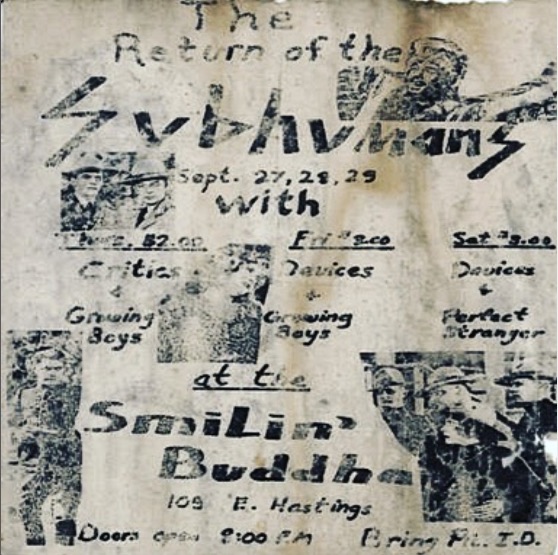 The
Return of the
Subhumans
Sept. 27, 28, 29
with
Thurs. $2.00 Fri $3.00 Sat $3.00
Critics Devices Devices
+ + +
Growing Growing Perfect
Boys Boys Stranger
at the
Smilin'
Buddha
109 E. Hastings
Doors open 8:00 PM Bring Pic. I.D.